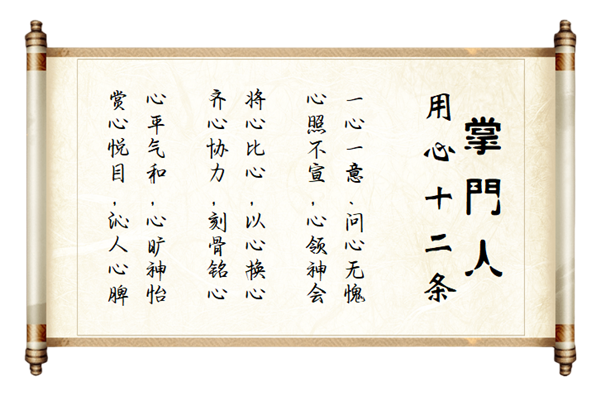 掌門人
用心十二条
一心一意、问心无愧
心照不宣,心领神会
将心比心,以心换心
齐心协力,刻骨铭心
心平气和,心旷神怡
赏心悦目,沁人心脾